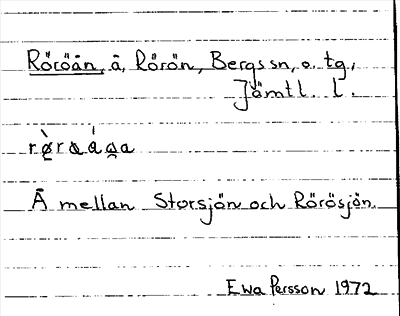 Röröån, å, Rörön, Bergs sn, o. tg.,
Jämtl. l.
Å mellan Storsjön och Rörösjön.
Ewa Persson 1972